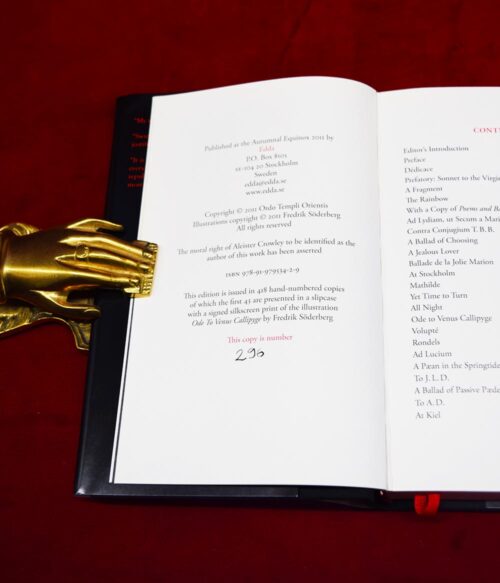 Published at the Autumnal Equinox 2011 by
Edda
P.O. Box 8105
SE-104 20 Stockholm
Sweden
edda@edda.se
www.edda.se
Copyright © 2011 Ordo Templi Orientis
Illustrations copyright © 2011 Fredrik Söderberg
All rights reserved
The moral right of Aleister Crowley to be identified as the
author of this work has been asserted
ISBN 978-91-979534-2-9
This edition is issued in 418 hand-numbered copies
of which the first 43 are presented in a slipcase
with a signed silkscreen print of the illustration
Ode To Venus Callipyge by Fredrik Söderberg
This copy is number
290
CONT
Editor's Introduction
Preface
Dedicace
Prefatory: Sonnet to the Virgi
A Fragment
The Rainbow
With a Copy of Poems and Ba
Ad Lydiam, ut Secum a Mari
Contra Conjugium T. B. B.
A Ballad of Choosing
A Jealous Lover
Ballade de la Jolie Marion
At Stockholm
Mathilde
Yet Time to Turn
All Night
Ode to Venus Callipyge
Volupté
Rondels
Ad Lucium
A Pæan in the Springtide
To J. L. D.
A Ballad of Passive Pæde
To A. D.
At Kiel